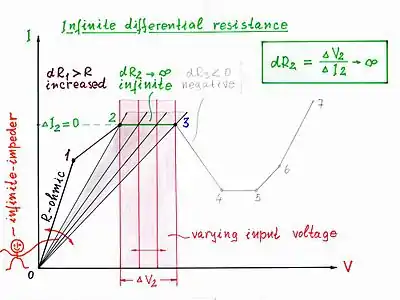 Infinite differential resistance
I
dR1 > R
increased
dR2 → ∞
infinite
dR3 < 0
negative
dR2 = ΔV2 / ΔI2 → ∞
ΔI2 = 0
2
3
7
1
6
4
5
R-ohmic
infinite-impeder
varying input voltage
0
ΔV2
V